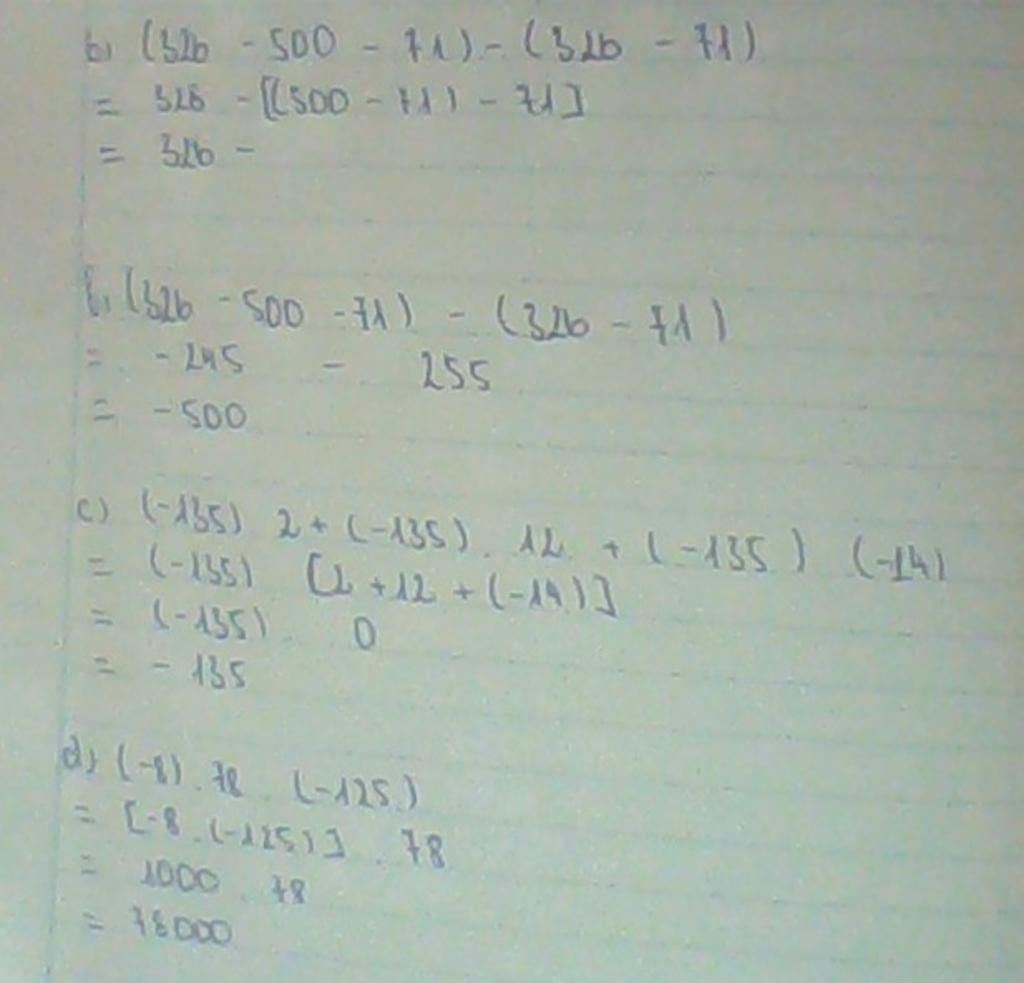 b) (326 - 500 - 71) - (326 - 71)
= 326 - [(500 - 71) - 71]
= 326 -
b, (326 - 500 - 71) - (326 - 71)
= - 245 - 255
= - 500
c) (-135) 2 + (-135) . 12 + (-135) (-14)
= (-135) [2 + 12 + (-14)]
= (-135) . 0
= - 135
d) (-8) . 78 (-125)
= [-8 . (-125)] . 78
= 1000 . 78
= 78000